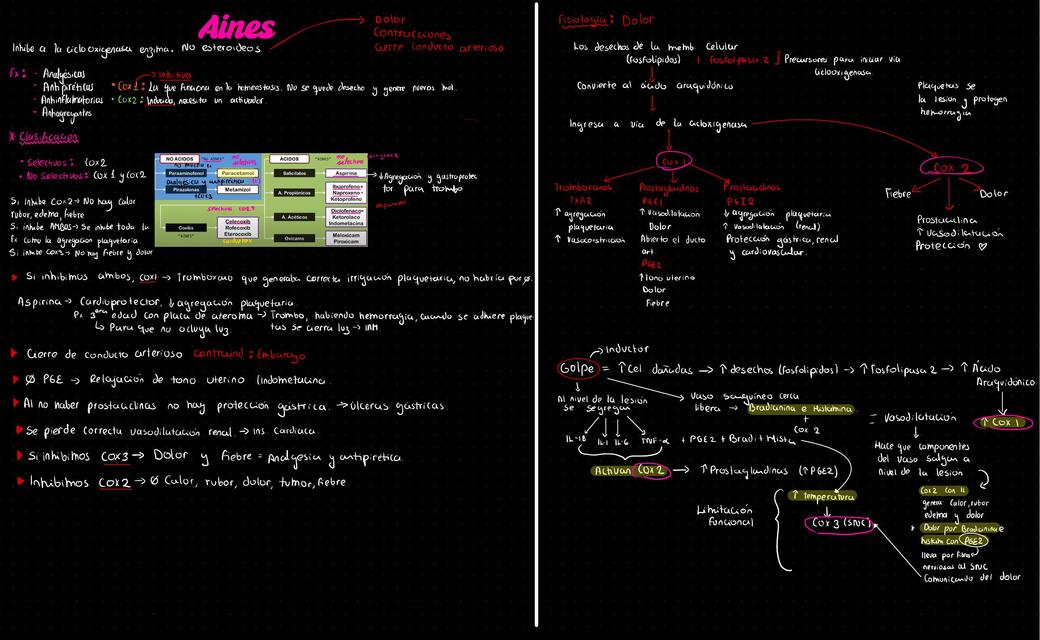 Aines
Inhibe a la ciclooxigenasa enzima. No esteroideos
Dolor
Contracciones
Cierre conducto arterioso
Fx: - Analgésicas
- Antipiréticas
- Antiinflamatorias
- Antiagregantes
• Cox 1: La que funciona en la homeostasis. No se quede desecho y genere nuevas mol.
• Cox 2: Inducida, necesita un activador.
Clasificación
• Selectivos: Cox 2
• No Selectivos: Cox 1 y Cox 2
NO ÁCIDOS
Paraaminofenol
Paracetamol
Pirazolonas
Metamizol
Coxibs
"AINES"
Celecoxib
Rofecoxib
Eterocoxib
ÁCIDOS
"AINES"
Salicilatos
Aspirina
A. Propiónicos
Ibuprofeno
Naproxeno
Ketoprofeno
A. Acéticos
Diclofenaco
Ketorolaco
Indometacina
Oxicams
Meloxicam
Piroxicam
↓ Agregación y gastroprotec
tor para trombo
Si inhibe Cox 2 → No hay calor
rubor, edema, fiebre
Si inhibe AMBOS → Se inhibe todo la
Fx como la agregación plaquetaria.
Si inhibe Cox 3 → No hay fiebre y dolor
Si inhibimos ambos, cox 1 → Tromboxano que generaba correcta irrigación plaquetaria, no habría
Aspirina → Cardioprotector, ↓ agregación plaquetaria.
Px 3era edad con placa de ateroma → Trombo, habiendo hemorragia, cuando se adhiere plaque-
↳ Para que no ocluya luz.
tas se cierra luz → IAM.
Cierre de conducto arterioso Contraind: Embarazo
Ø PGE → Relajación de tono uterino (Indometacina
Al no haber prostaciclinas no hay protección gástrica. → Úlceras gástricas.
Se pierde correcta vasodilatación renal → Ins. Cardiaca.
Si inhibimos COX3 → Dolor y Fiebre = Analgesia y antipirética.
Inhibimos COX2 → Ø Calor, rubor, dolor, tumor, fiebre
Fisiología: Dolor
Los desechos de la memb celular
(fosfolípidos) + fosfolipasa 2 } Precursores para iniciar vía
ciclooxigenasa.
Convierte al ácido araquidónico
Ingresa a vía de la ciclooxigenasa
Plaquetas se
la lesión y protegen
hemorragia
Cox 1
Cox 2
Tromboxanos
TXA2
↑ agregación
plaquetaria
↑ Vasoconstricción
Prostaglandinas
PGE1
↑ Vasodilatación
Dolor
Abierto el ducto
art
PGE2
↑ Tono uterino
Dolor
Fiebre
Prostaciclinas
PGI2
↓ agregación
plaquetaria
↑ Vasodilatación (renal)
Protección gástrica, renal
y cardiovascular.
Fiebre
Dolor
Prostaciclina
↑ Vasodilatación
Protección ♡
Inductor
Golpe = ↑ Cel. dañadas → ↑ desechos (fosfolípidos) → ↑ fosfolipasa 2 → ↑ Ácido
Araquidónico
↑ Cox 1
Al nivel de la lesión
se segregan
Vaso sanguíneo cerca
libera → Bradicinina e Histamina
+
Cox 2
= Vasodilatación
IL-1B IL-1 IL-6 TNF-α + PGE2 + Bradi + Hista
Activan Cox 2 → ↑ Prostaglandinas (↑ PGE2)
Hace que componentes
del vaso salgan a
nivel de la lesión
Limitación
funcional
↑ Temperatura
Cox 3 (SNC)
Cox 2 con IL
genera calor, rubor
edema y dolor
Dolor por Bradicinina e
histam con PGE2
lleva por fibras
nerviosas al SNC
Comunicando del dolor